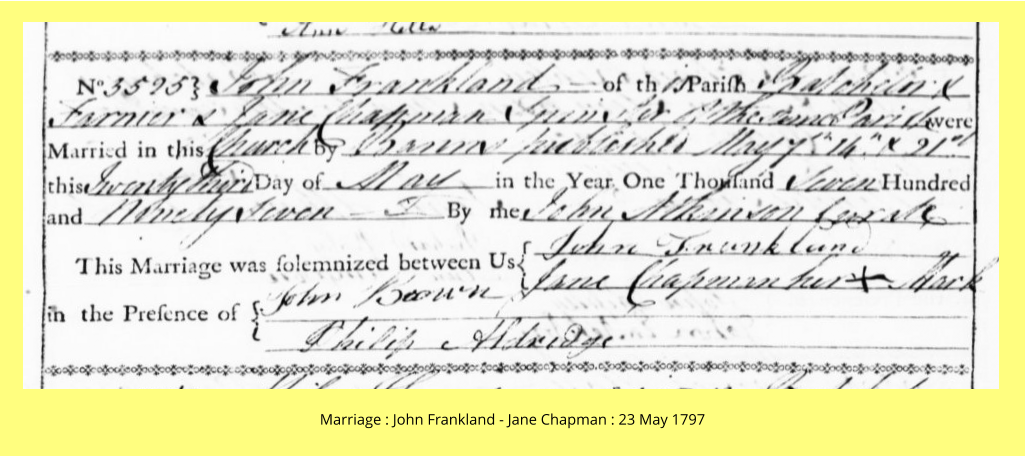 Ann
No 3595} John Frankland of this Parish Batchelor &
Farmer & Jane Chapman Spinster of the same Parish were
Married in this Church by Banns published May 7th 14th & 21st
this Twenty third Day of May in the Year One Thousand Seven Hundred
and Ninety Seven By me John Atkinson Curate
This Marriage was solemnized between Us { John Frankland
Jane Chapman her + Mark
in the Presence of { John Brown
Philip Aldredge
Marriage : John Frankland - Jane Chapman : 23 May 1797